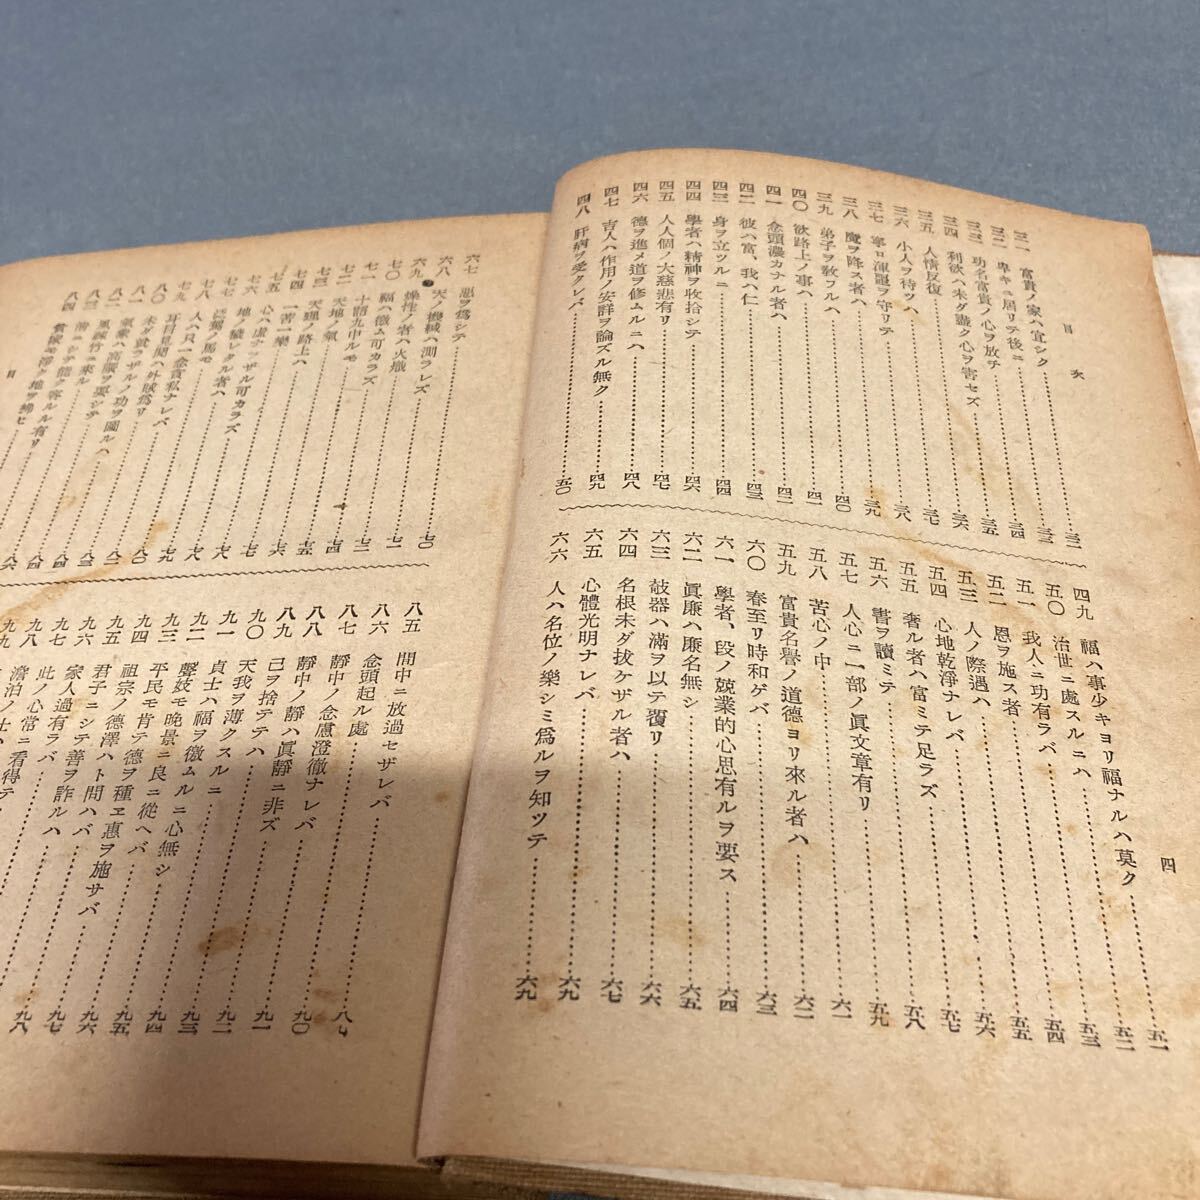 目次
三一 富貴ノ家ハ宜シク……三二
三二 卑キニ居リテ後ニ……三三
三三 功名富貴ノ心ヲ放チ……三四
三四 利欲ハ未ダ盡ク心ヲ害セズ……三五
三五 人情反復……三六
三六 小人ヲ待ツハ……三七
三七 寧ロ渾噩ヲ守リテ……三八
三八 魔ヲ降ス者ハ……三九
三九 弟子ヲ敎フルハ……四〇
四〇 欲路上ノ事ハ……四一
四一 念頭濃カナル者ハ……四二
四二 彼ハ富、我ハ仁……四三
四三 身ヲ立ツルニ……四四
四四 學者ハ精神ヲ收拾シテ……四六
四五 人人個ノ大慈悲有リ……四七
四六 德ヲ進メ道ヲ修ムルニハ……四八
四七 吉人ハ作用ノ安詳ヲ論ズル無ク……四九
四八 肝病ヲ受クレバ……五〇
四九 福ハ事少キヨリ福ナルハ莫ク……五一
五〇 治世ニ處スルニハ……五二
五一 我人ニ功有ラバ……五三
五二 恩ヲ施ス者……五四
五三 人ノ際遇ハ……五五
五四 心地乾淨ナレバ……五六
五五 奢ル者ハ富ミテ足ラズ……五七
五六 書ヲ讀ミテ……五八
五七 人心ニ一部ノ眞文章有リ……五九
五八 苦心ノ中……六一
五九 富貴名譽ノ道德ヨリ來ル者ハ……六二
六〇 春至リ時和ゲバ……六三
六一 學者、段ノ兢業的心思有ルヲ要ス……六四
六二 眞廉ハ廉名無シ……六五
六三 攲器ハ滿ヲ以テ覆リ……六六
六四 名根未ダ拔ケザル者ハ……六七
六五 心體光明ナレバ……六九
六六 人ハ名位ノ樂シミ爲ルヲ知ツテ……六九
四
六七 惡ヲ爲シテ……七〇
六八 天ノ機緘ハ測ラレズ……七一
六九 燥性ノ者ハ火熾……七一
七〇 福ハ徼ム可カラズ……七二
七一 十語九中ルモ……七三
七二 天地ノ氣……七四
七三 天理ノ路上ハ……七五
七四 一苦一樂……七六
七五 心ハ虛ナラザル可カラズ……七七
七六 地ノ穢レタル者ハ……七八
七七 泛駕ノ馬モ……七九
七八 人ハ只一念貪私ナレバ……七九
七九 耳目見聞ハ外賊爲リ……八〇
八〇 未ダ就ラザルノ功ヲ圖ルハ……八一
八一 氣象ハ高曠ヲ要シテ……八二
八二 風疎竹ニ來ル……八三
八三 淸ニシテ能ク容ルル有リ……八四
八四 貧家モ淨ク地ヲ拂ヒ……八六
目
八五 閒中ニ放過セザレバ
八六 念頭起ル處
八七 靜中ノ念慮澄徹ナレバ
八八 靜中ノ靜ハ眞靜ニ非ズ……九〇
八九 己ヲ捨テテハ……九一
九〇 天我ヲ薄クスルニ……九二
九一 貞士ハ福ヲ徼ムルニ心無シ……九三
九二 聲妓モ晩景ニ良ニ從ヘバ……九四
九三 平民モ肯テ德ヲ種ヱ惠ヲ施サバ……九五
九四 祖宗ノ德澤ハト問ハバ……九六
九五 君子ニシテ善ヲ詐ルハ……九七
九六 家人過有ラバ……九八
九七 此ノ心常ニ看得テ
九八 澹泊ノ士ハ
九九